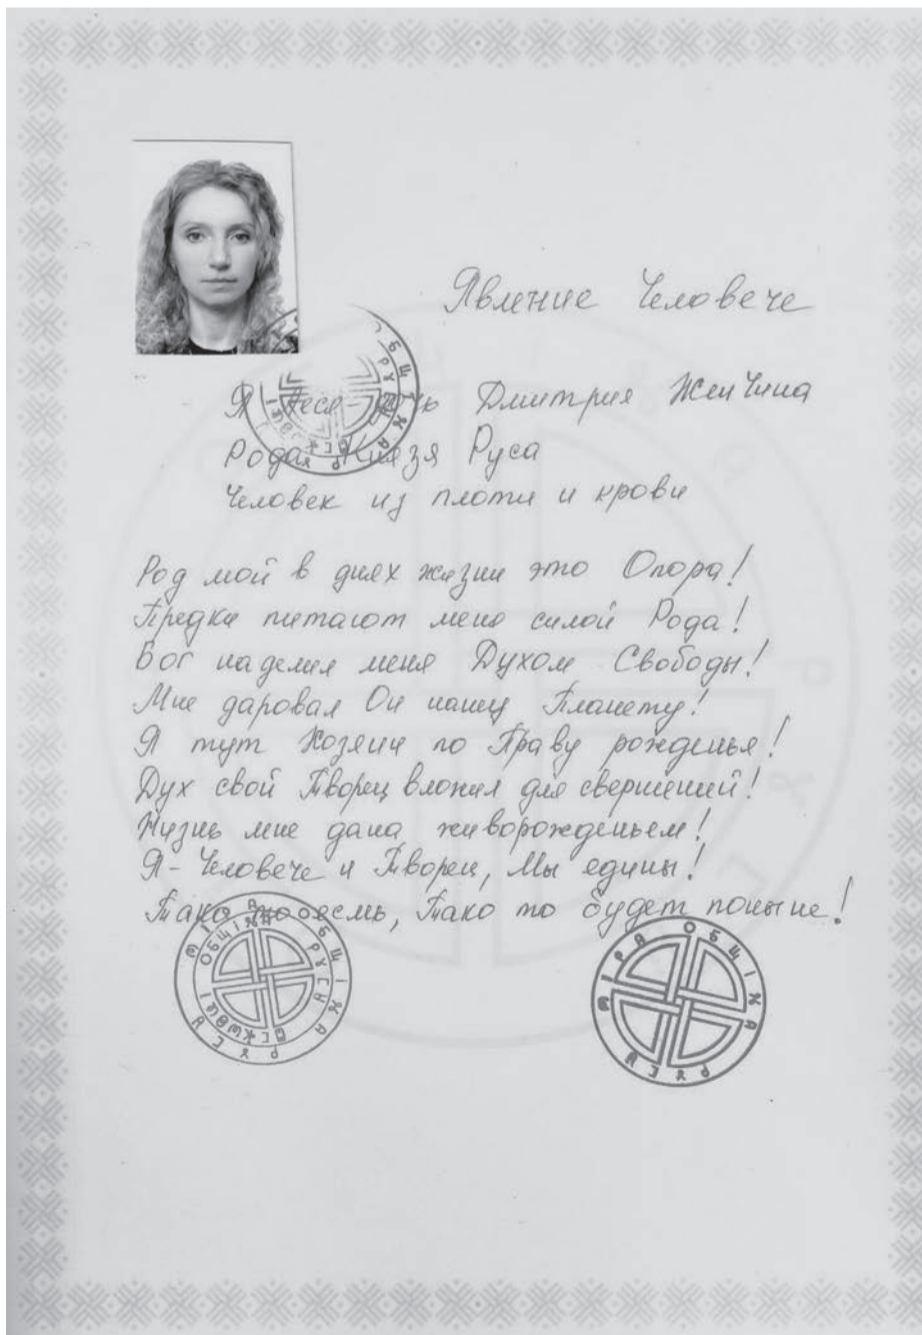 Явление Человече
Я Леся-дочь Дмитрия ЖенЧина
Родая Князя Руса
Человек из плоти и крови
Род мой в днях жизни это Опора!
Предки питают меня силой Рода!
Бог наделил меня Духом Свободы!
Мне даровал Он нашу Планету!
Я тут Хозяин по Праву рожденья!
Дух свой Творец вложил для свершений!
Жизнь мне дана живорожденьем!
Я - Человече и Творец, Мы едины!
Тако то есмь, Тако то будет поныне!
МІРА ОБЩІНА